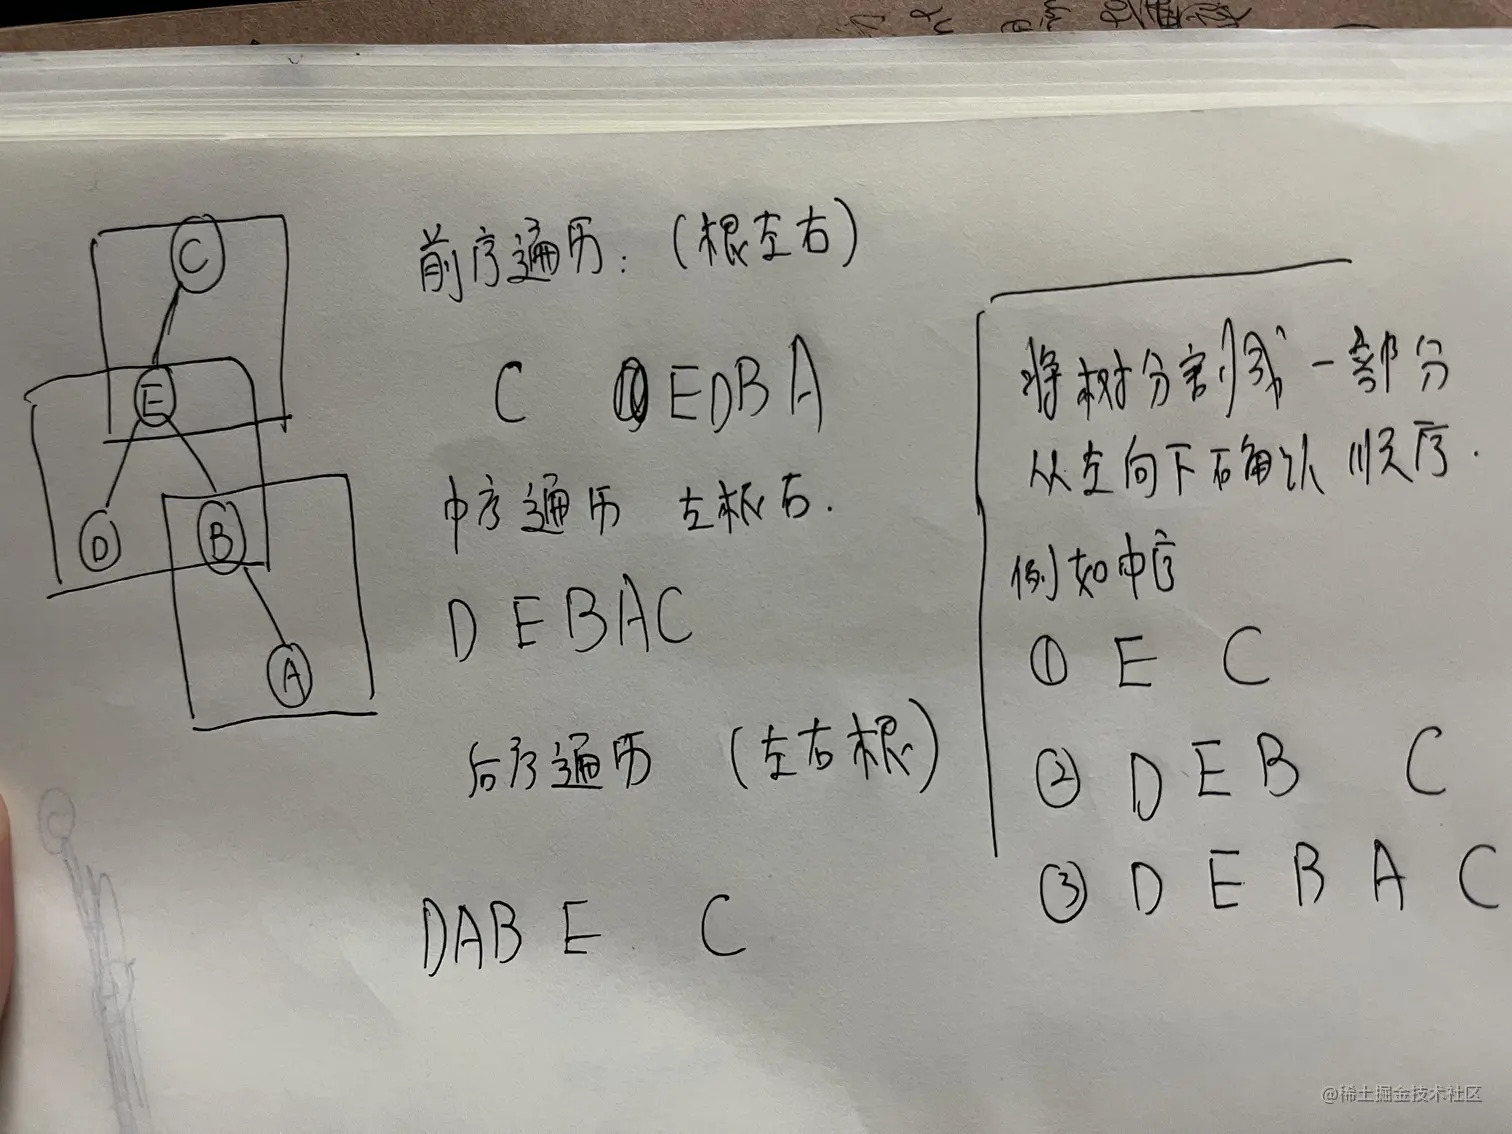 C
E
D B
A
前序遍历：（根左右）
C EDBA
中序遍历 左根右.
D E B A C
后序遍历 （左右根）
DAB E C
将树分割成一部分
从左向下右确认顺序.
例如中序
① E C
② D E B C
③ D E B A C
@稀土掘金技术社区